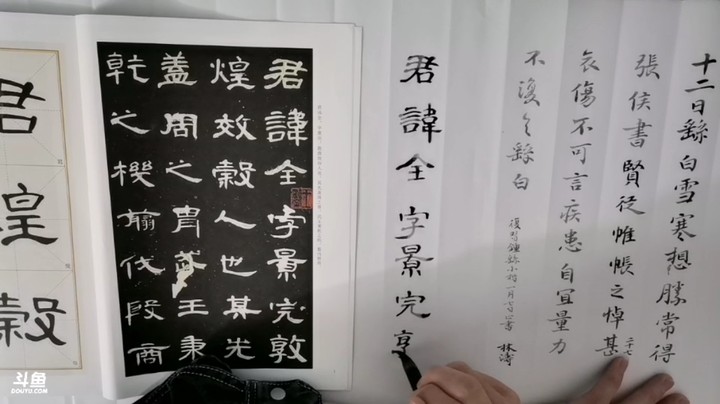 十二日繇白雪寒想勝常得
張侯書賢從帷帳之悼甚
二十七
哀傷不可言疾患自宜量力
不復具繇白
林濤
君諱全字景完
君諱全字景完敦
煌效穀人也其先
蓋周之胄武王秉
乾之機翦伐殷商
君煌穀
斗鱼
DOUYU.COM